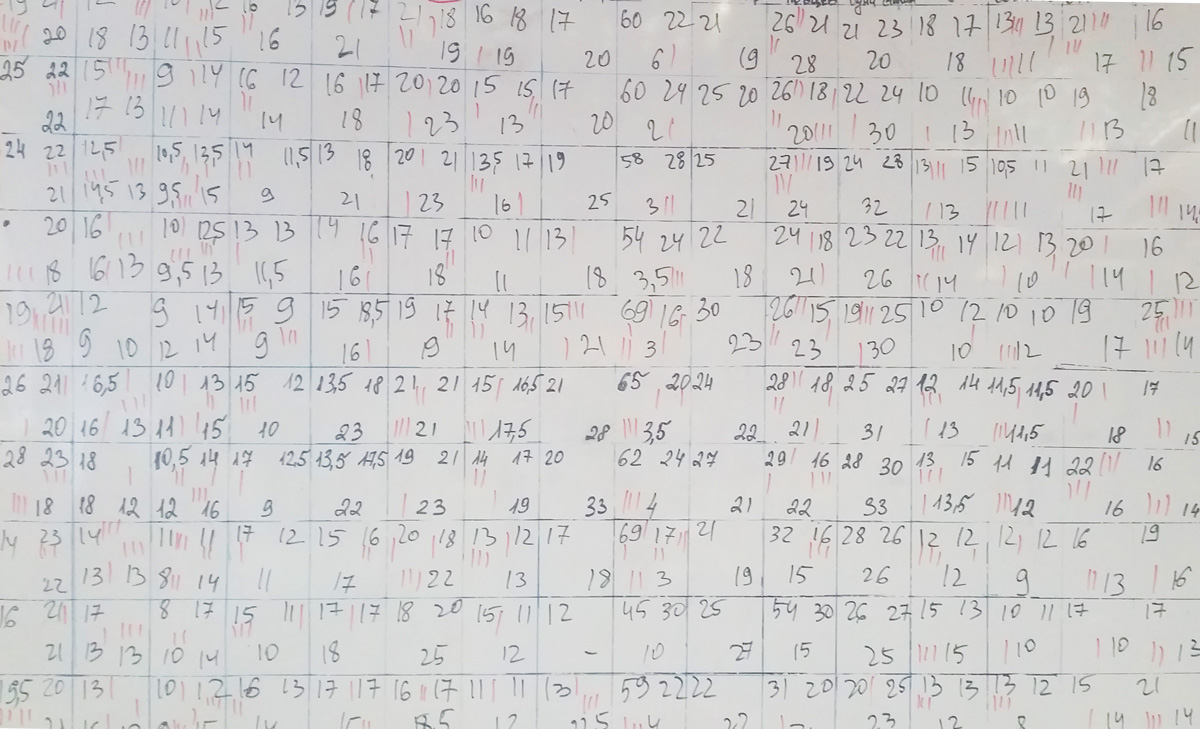 20 18 13 11 15 16 21 19 19 20 6 19 28 20 18 11 17 15
25 22 15 9 14 16 12 16 17 20 20 15 15 17 60 24 25 20 26 18 22 24 10 11 10 10 19 18
22 17 13 11 14 14 18 23 13 20 2 20 30 13 11 13 11
24 22 12,5 10,5 13,5 14 11,5 13 18 20 21 13,5 17 19 58 28 25 27 19 24 28 13 15 10,5 11 21 17
21 14,5 13 9,5 15 9 21 23 16 25 3 21 24 32 13 11 17
20 16 10 12,5 13 13 14 16 17 17 10 11 13 54 24 22 24 18 23 22 13 14 12 13 20 16
18 16 13 9,5 13 11,5 16 18 11 18 3,5 18 21 26 14 10 14 12
19 21 12 9 14 15 9 15 18,5 19 17 14 13 15 69 16 30 26 15 19 25 10 12 10 10 19 25
18 9 10 12 14 9 16 19 14 21 3 23 23 30 10 12 17 14
26 21 16,5 10 13 15 12 13,5 18 21 21 15 16,5 21 65 20 24 28 18 25 27 12 14 11,5 11,5 20 17
20 16 13 11 15 10 23 21 17,5 28 3,5 22 21 31 13 11,5 18 15
28 23 18 10,5 14 17 12,5 13,5 17,5 19 21 14 17 20 62 24 27 29 16 28 30 13 15 11 11 22 16
18 18 12 12 16 9 22 23 19 33 4 21 22 33 13,5 12 16 14
14 23 14 11 11 17 12 15 16 20 18 13 12 17 69 17 21 32 16 28 26 12 12 12 12 16 19
22 13 13 8 14 11 17 22 13 18 3 19 15 26 12 9 13 16
16 21 17 8 17 15 11 17 17 18 20 15 11 12 45 30 25 54 30 26 27 15 13 10 11 17 17
21 13 13 10 14 10 18 25 12 – 10 27 15 25 15 10 10 13
19,5 20 13 10 12 16 13 17 17 16 17 11 11 13 59 22 22 31 20 20 25 13 13 13 12 15 21